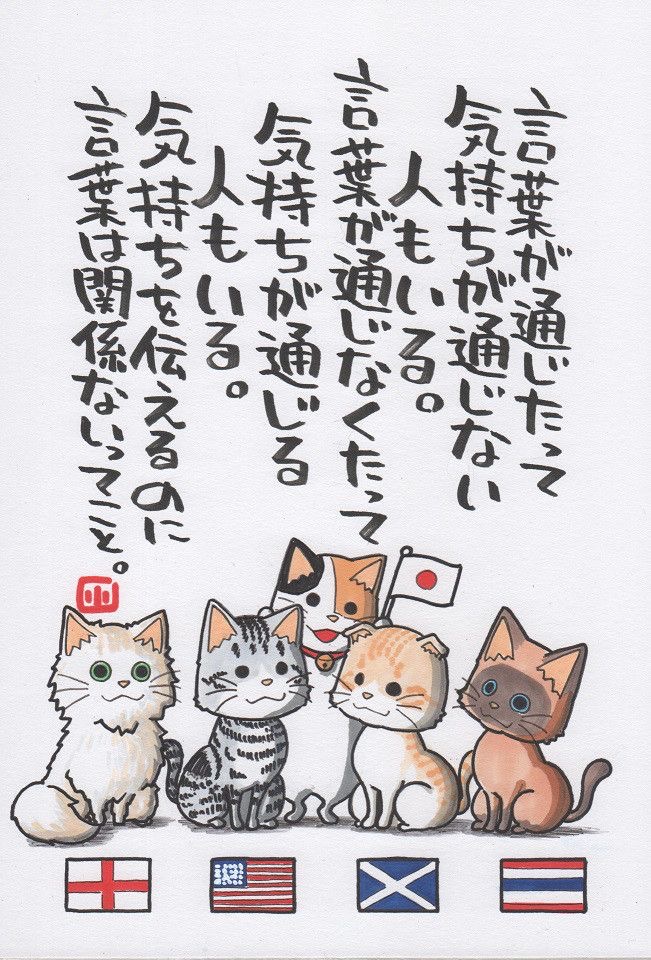 言葉が通じたって
気持ちが通じない
人もいる。
言葉が通じなくたって
気持ちが通じる
人もいる。
気持ちを伝えるのに
言葉は関係ないってこと。